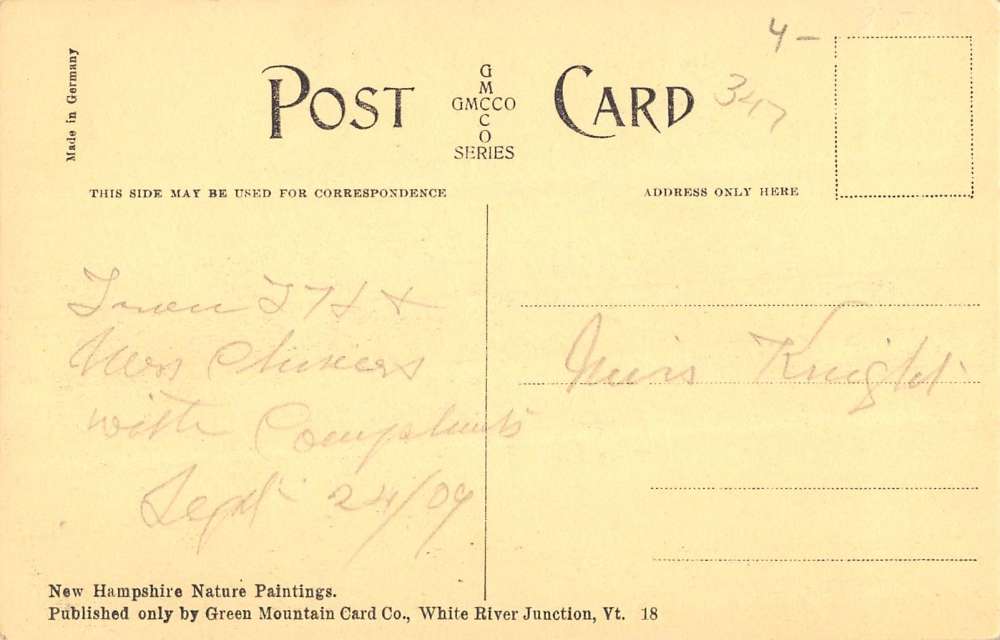 4 –
Made in Germany
POST CARD
G
M
GMCCO
C
O
SERIES
347
THIS SIDE MAY BE USED FOR CORRESPONDENCE
ADDRESS ONLY HERE
From &
Mrs
with Compliments
Sept 24/09
Miss Knight
New Hampshire Nature Paintings.
Published only by Green Mountain Card Co., White River Junction, Vt. 18